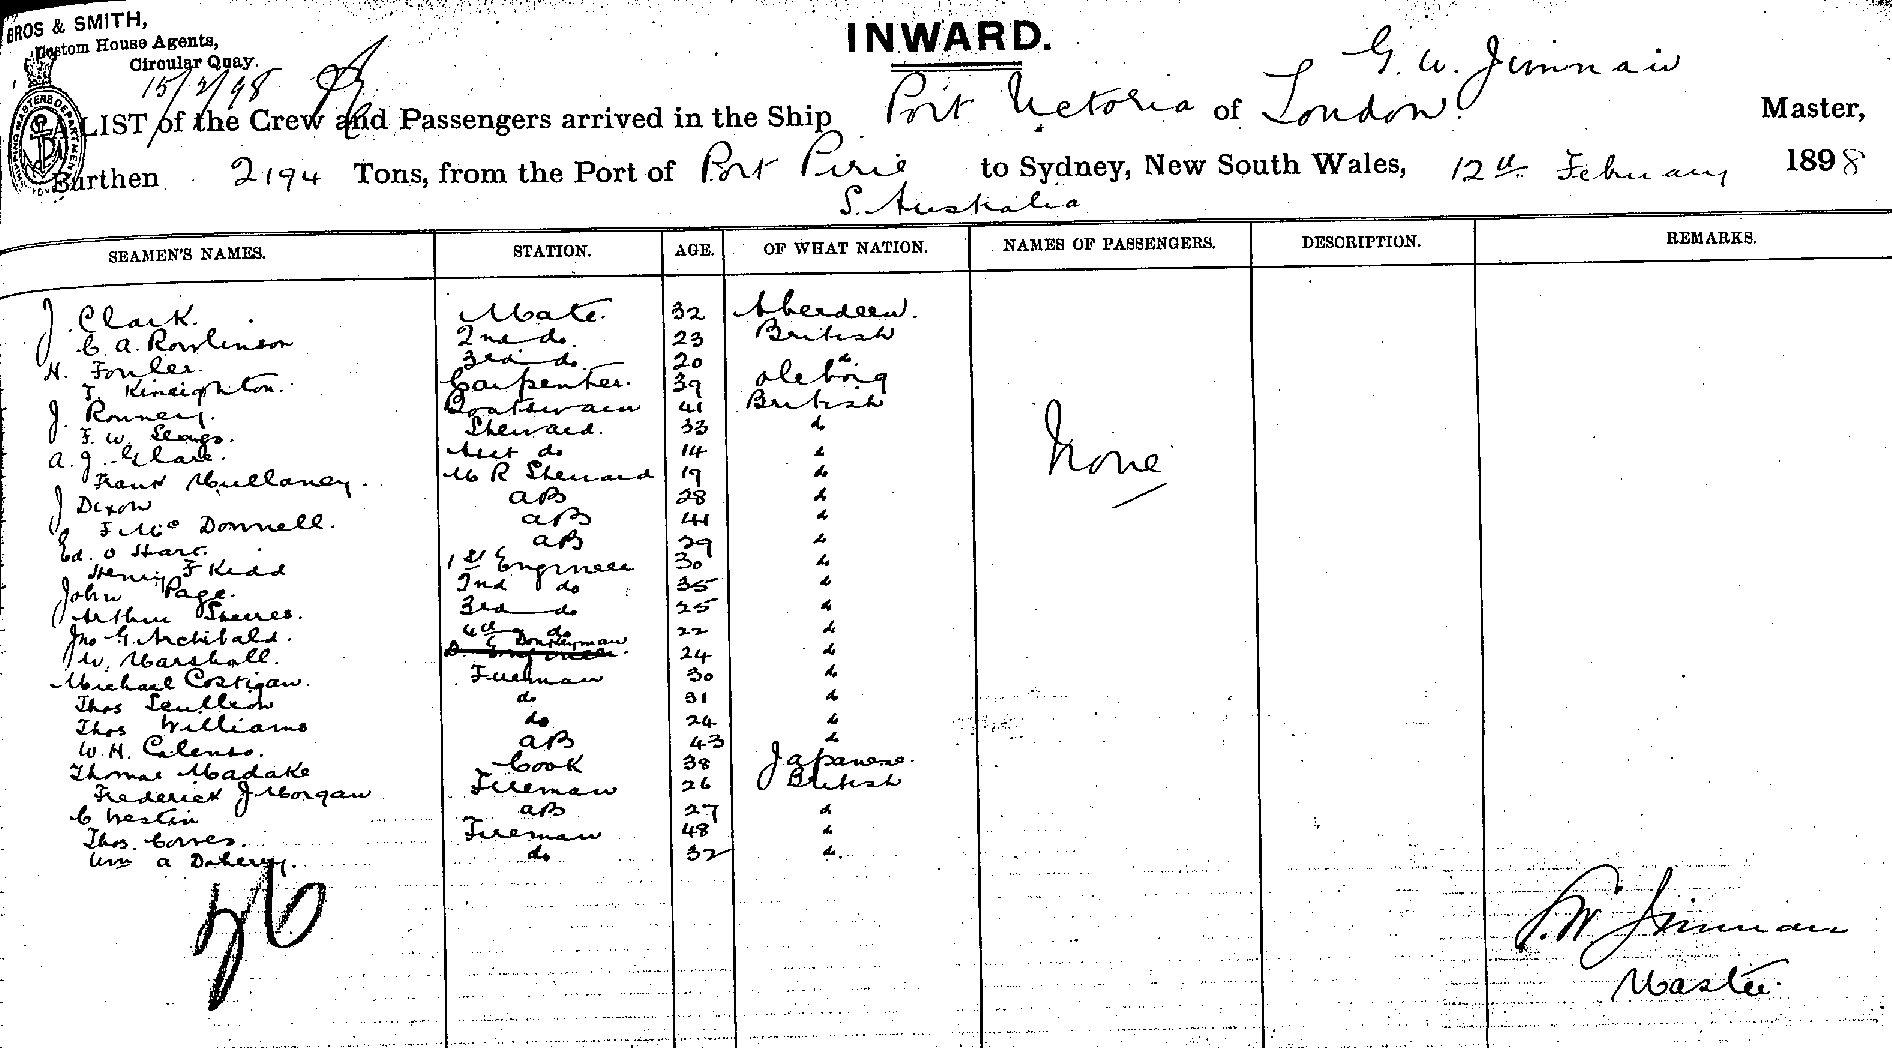 BROS & SMITH,
Custom House Agents,
Circular Quay.
15/2/98
INWARD.
G. W. Jinman
A LIST of the Crew and Passengers arrived in the Ship Port Victoria of London Master,
Burthen 2194 Tons, from the Port of Port Pirie to Sydney, New South Wales, 12th February 1898
S. Australia
SEAMEN'S NAMES. STATION. AGE. OF WHAT NATION. NAMES OF PASSENGERS. DESCRIPTION. REMARKS.
J. Clark. Mate. 32 Aberdeen.
C. A. Rowlinson 2nd do. 23 British
H. Fowler. 3rd do. 20 do
T. Kineighton. Carpenter. 39
J. Ronney. Boatswain 41 British
F. W. Steward. 33 do
A. J. Clare. Asst do 14 do
Frank Mullaney. M R Steward 19 do
J Dixon AB 28 do
F Mc Donnell. AB 41 do
Ed. O Hare. AB 29 do
Henry F Kidd 1st Engineer 30 do
John Page. 2nd do 35 do
Arthur 3rd do 25 do
Jno G. Archibald. 4th do 22 do
W. Marshall. Donkeyman 24 do
Michael Costigan. Fireman 30 do
Thos Scullion do 31 do
Thos Williams do 24 do
W. H. Colenso. AB 43 do
Thomas Madake Cook 38 Japanese.
Frederick J Morgan Fireman 26 British
C Westin AB 27 do
Thos. Fireman 48 do
Wm A Doherty. do 32 do
None
26
G. W. Jinman
Master.